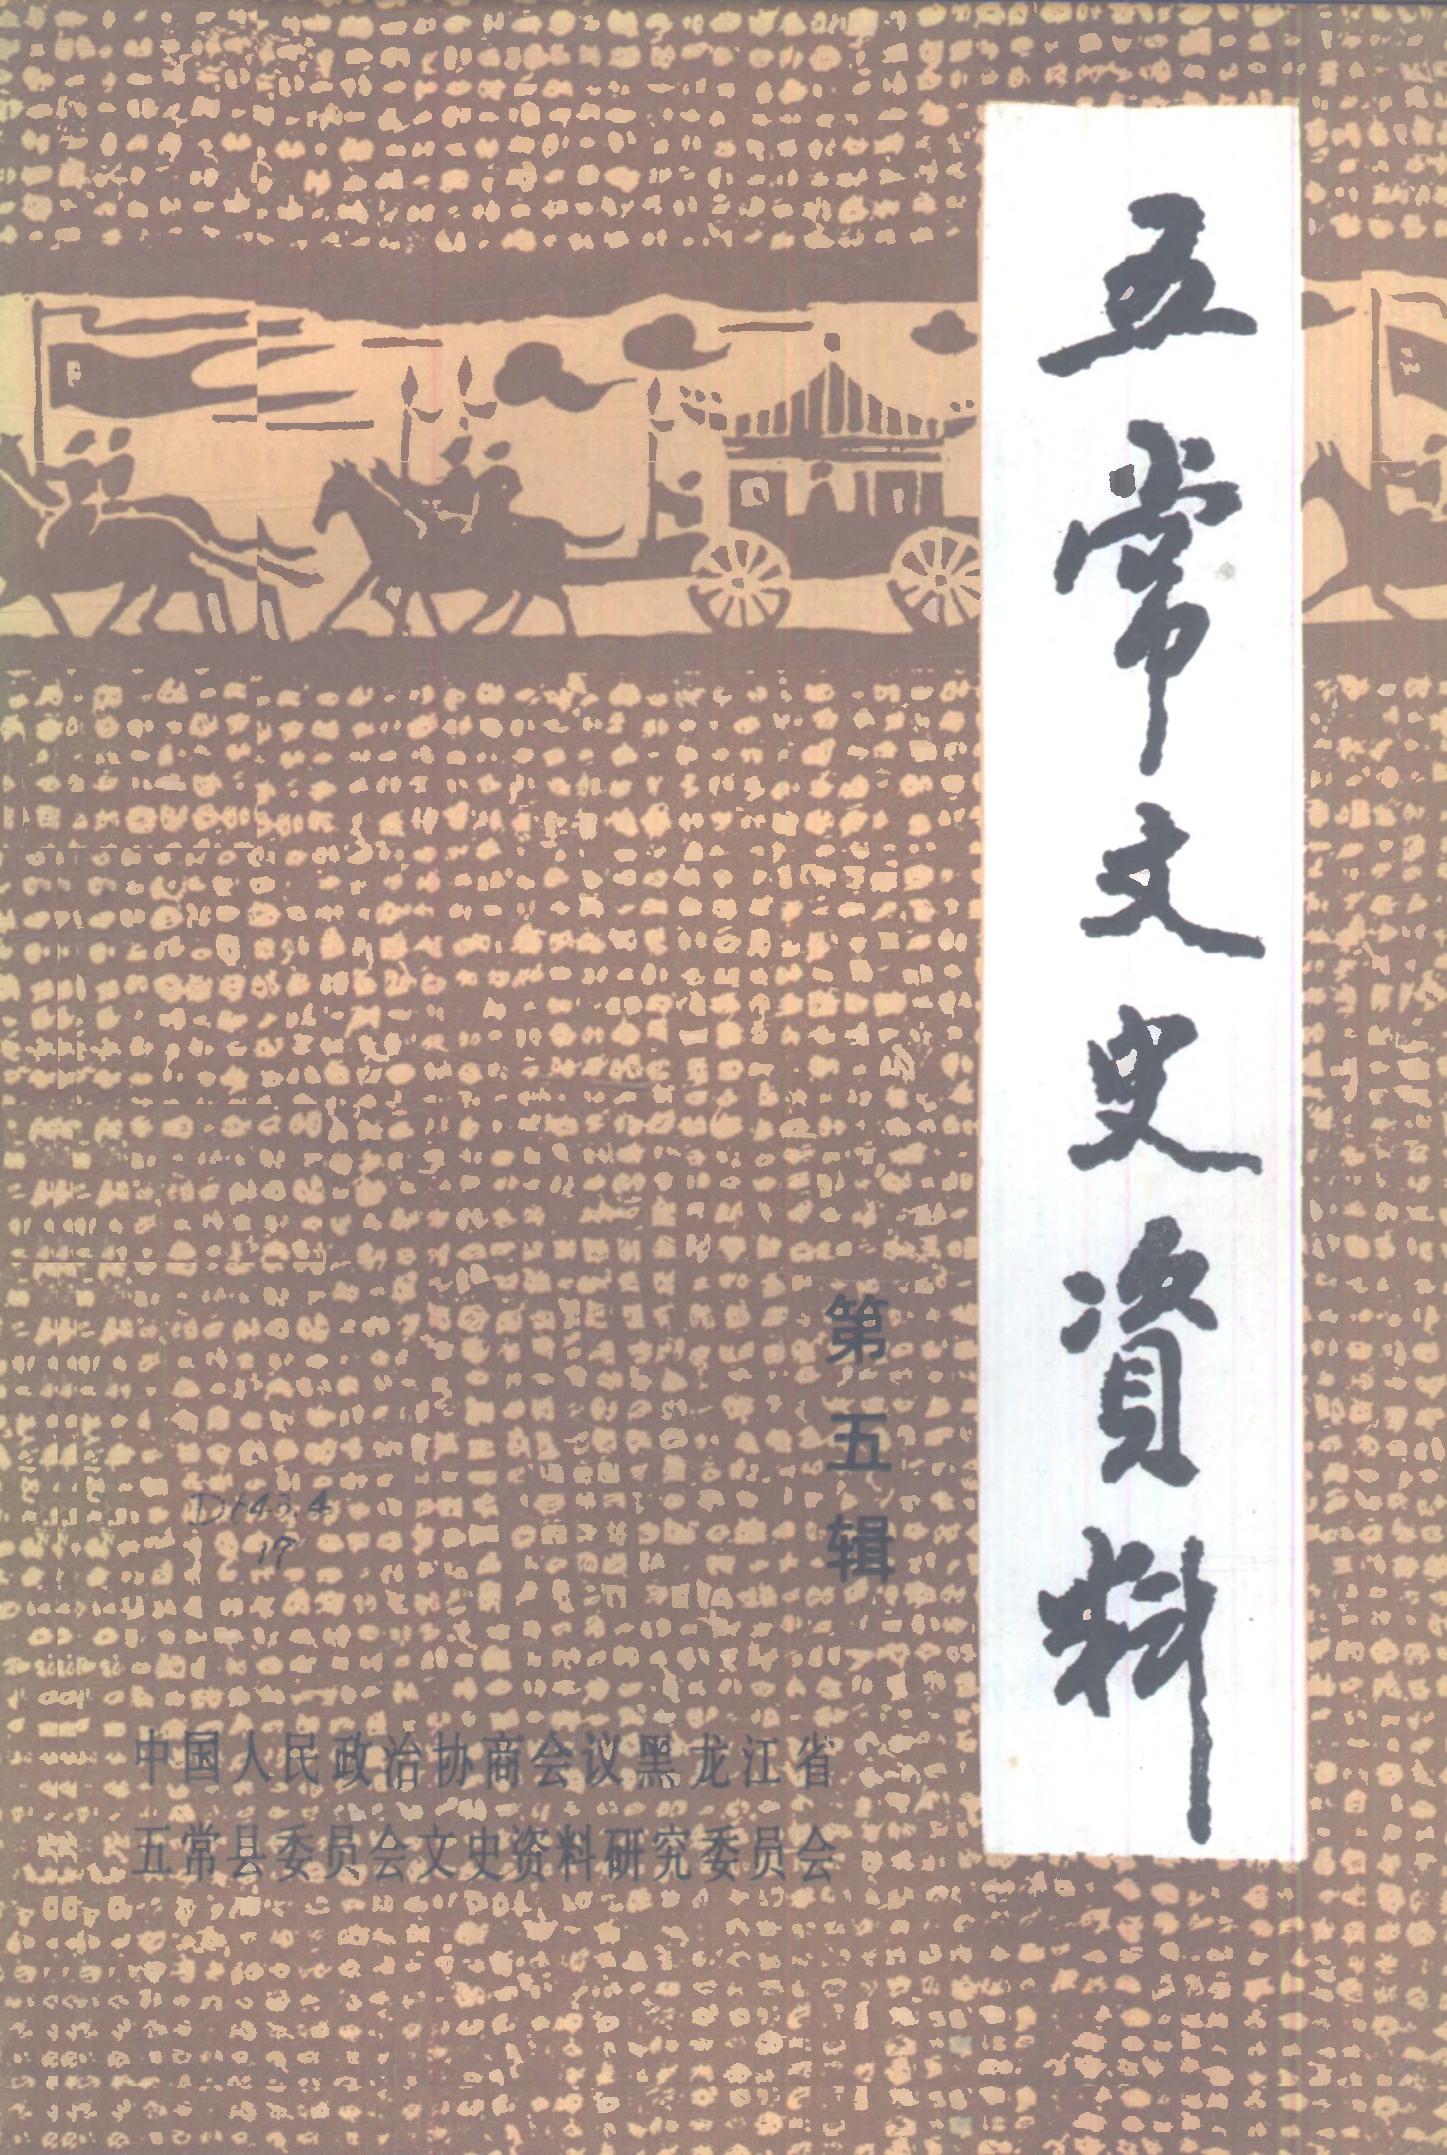 五常文史資料
第五辑
D643.4
17
中国人民政治协商会议黑龙江省
五常县委员会文史资料研究委员会